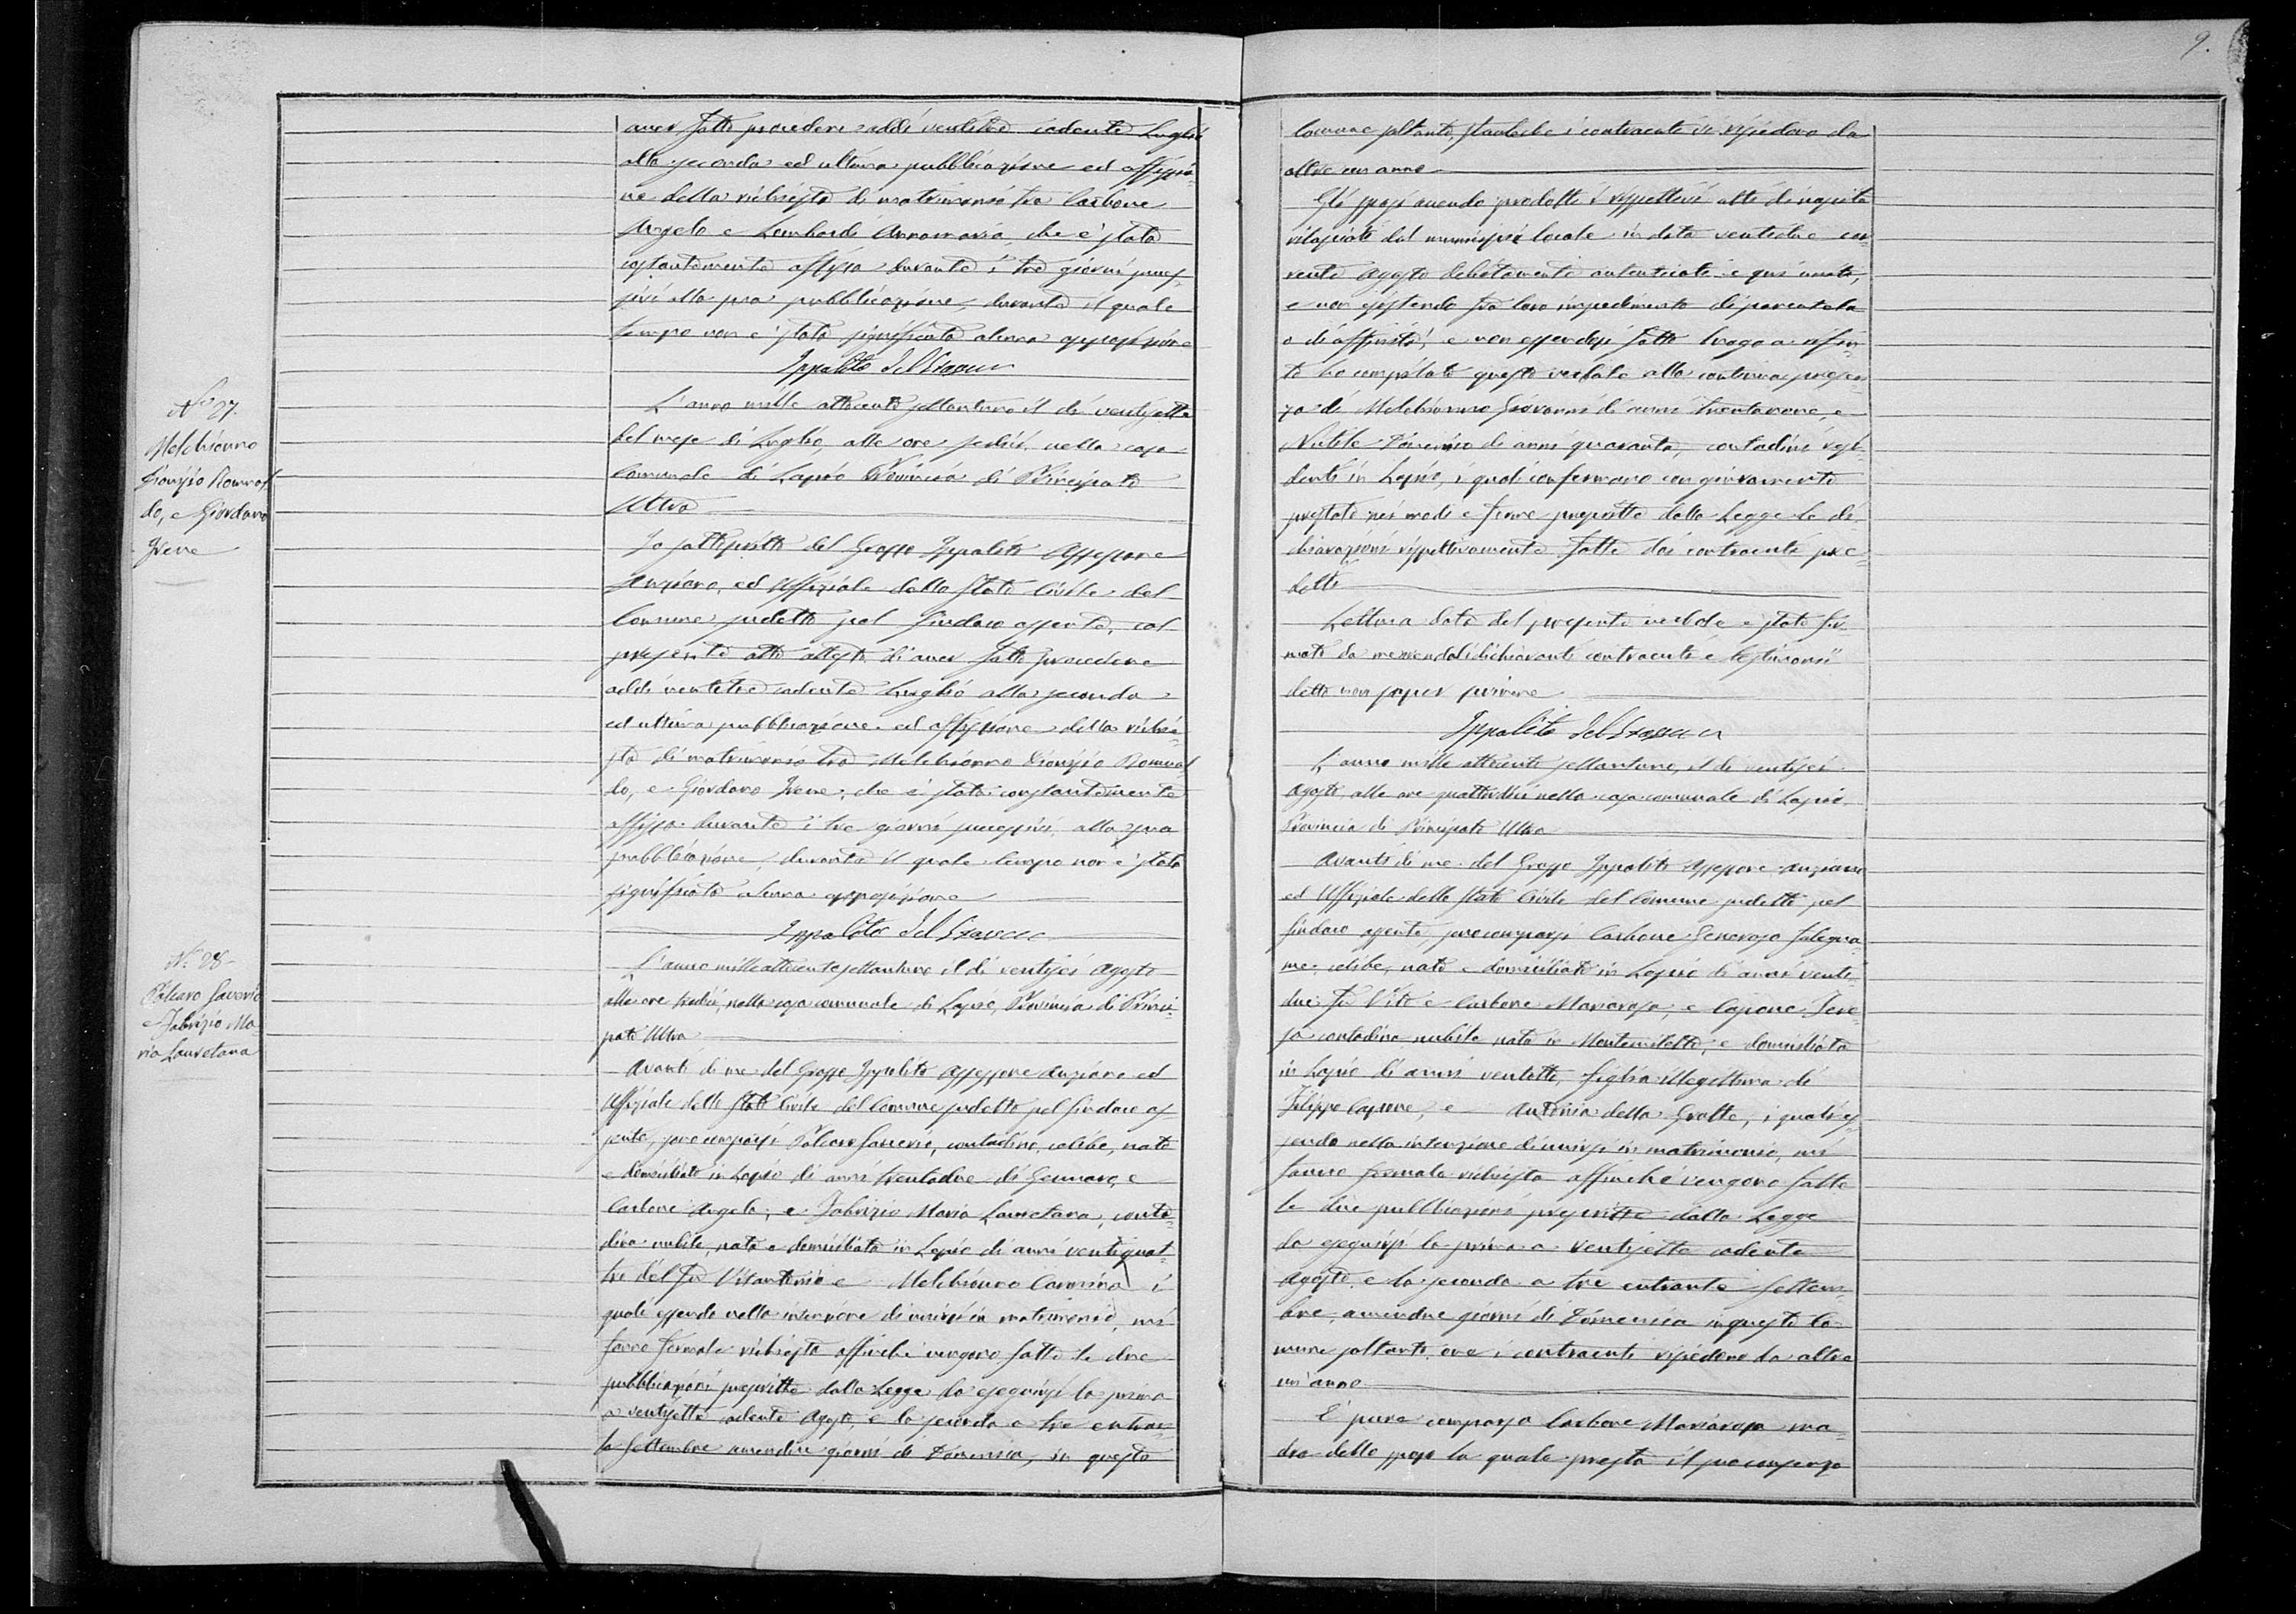 9.
aver fatto procedere addì ventitrè cadente Luglio
alla seconda ed ultima pubblicazione ed affissio-
ne della richiesta di matrimonio tra Carbone
Angelo e Lombardi Annamaria, che è stata
costantemente affissa durante i tre giorni succes-
sivi alla sua pubblicazione, durante il quale
tempo non è stata significata alcuna opposizione
Ippolito Del Grosso
N.° 27.
Melchionno
Dionisio Romual
do, e Giordano
Irene
L'anno mille ottocento settantuno il dì ventisette
del mese di Luglio, alle ore sedici nella casa
Comunale di Lapio Provincia di Principato
Ultra
Io sottoscritto del Grosso Ippolito Assessore
Anziano, ed Uffiziale dello Stato Civile del
Comune sudetto pel Sindaco assente, col
presente atto attesto di aver fatto procedere
addì ventitrè cadente Luglio alla seconda
ed ultima pubblicazione ed affissione della richie-
sta di matrimonio tra Melchionno Dionisio Romual
do, e Giordano Irene, che è stata costantemente
affissa durante i tre giorni successivi alla sua
pubblicazione, durante il quale tempo non è stata
significata alcuna opposizione
Ippolito Del Grosso
N.° 28-
Palcaro Saverio
e Fabrizio Ma
ria Lauretana
L'anno mille ottocento settantuno il dì ventisei Agosto
alle ore tredici, nella casa comunale di Lapio, Provincia di Princi-
pato Ultra
Avanti di me del Grosso Ippolito Assessore Anziano ed
Uffiziale dello Stato Civile del Comune sudetto pel Sindaco as
sente, sono comparsi Palcaro Saverio, contadino, celibe, nato
e domiciliato in Lapio di anni trentadue di Gennaro, e
Carbone Angela, e Fabrizio Maria Lauretana, conta-
dina nubile, nata e domiciliata in Lapio di anni ventiquat-
tro del fu Vitantonio e Melchionno Carmina i
quali essendo nella intenzione di unirsi in matrimonio, mi
fanno formale richiesta affinchè vengano fatte le due
pubblicazioni prescritte dalla Legge da eseguirsi la prima
a ventisette cadente Agosto, e la seconda a tre entran-
te Settembre amendue giorni di Domenica, in questo
Comune soltanto, stantechè i contraenti vi risiedono da
oltre un anno
Gli sposi avendo prodotti i rispettivi atti di nascita
rilasciati dal municipio locale in data ventidue cor-
rente Agosto debitamente autenticati e qui uniti,
e non esistendo fra loro impedimento di parentela
o di affinità, e non essendosi fatto luogo a rifiu-
to ho compilato questo verbale alla continua presen-
za di Melchionno Giovanni di anni trentanove, e
Nubile Domenico di anni quaranta, contadini resi-
denti in Lapio, i quali confermano con giuramento
prestato nei modi e forme prescritte dalla Legge le di-
chiarazioni rispettivamente fatte dai contraenti pre-
detti
Lettura data del presente verbale è stato fir-
mato da me avendo i dichiaranti contraenti e testimoni
detto non saper firmare
Ippolito Del Grosso
L'anno mille ottocento settantuno, il dì ventisei
Agosto, alle ore quattordici nella casa comunale di Lapio,
Provincia di Principato Ultra
Avanti di me del Grosso Ippolito Assessore anziano
ed Uffiziale dello Stato Civile del Comune sudetto pel
Sindaco assente, sono comparsi Carbone Generoso falegna-
me, celibe, nato e domiciliato in Lapio di anni venti-
due fu Vito e Carbone Mariarosa, e Capone Tere-
sa contadina nubile nata in Montemiletto, e domiciliata
in Lapio di anni ventotto, figlia illegittima di
Filippo Capone, e Antonia della Grotta, i quali es-
sendo nella intenzione di unirsi in matrimonio, mi
fanno formale richiesta affinchè vengano fatte
le due pubblicazioni prescritte dalla Legge
da eseguirsi la prima a ventisette cadente
Agosto, e la seconda a tre entrante Settem-
bre, amendue giorni di Domenica in questo Co-
mune soltanto ove i contraenti risiedono da oltre
un'anno
E' pure comparsa Carbone Mariarosa ma-
dre dello sposo la quale presta il suo consenso